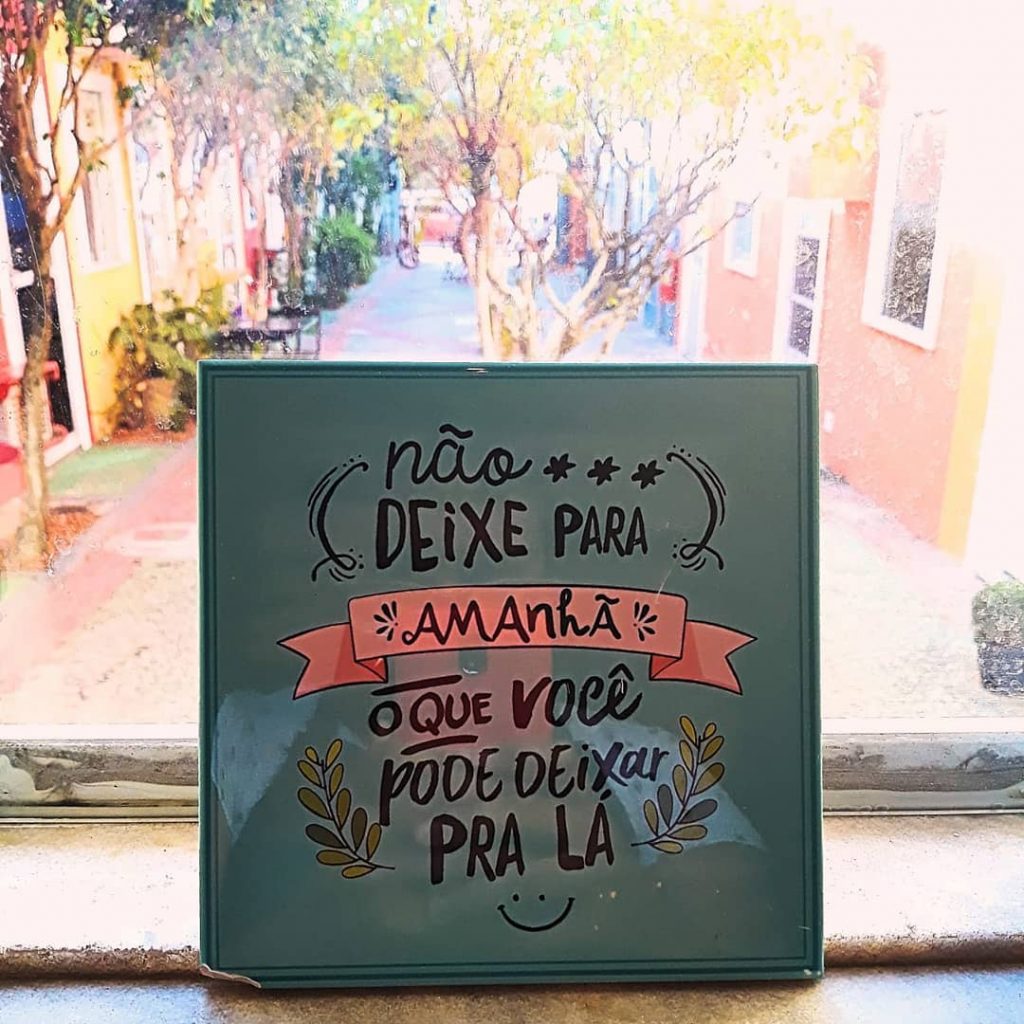 não
DEiXE PARA
AMAnhÃ
O QUE VOCÊ
PODE DEiXar
PRA LÁ